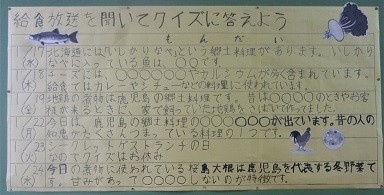 給食放送を聞いてクイズに答えよう
もんだい
1/17 北海道には「いしかりなべ」という郷土料理があります。いしかり
(水) なべに入っている魚は、〇〇です。
1/18 ユーズには〇〇〇〇〇やカルシウムが多く含まれています。
(木) 給食ではカレーやシチューなどの料理に使われています。
1/19 地鶏の煮物は鹿児島の郷土料理です。昔は〇〇のときやお客
(金)
今日は、鹿児島の郷土料理の〇〇〇〇が出ています。昔の人の
(月) 知恵がたくさんつまっている料理の1つです。
1/23 シークレットゲストランチの日
(火) なのでクイズはお休み
1/24 今日の煮物に使われている桜島大根は鹿児島を代表する冬野菜で
(水) す。甘みがあって〇〇〇〇しないのが特徴です。